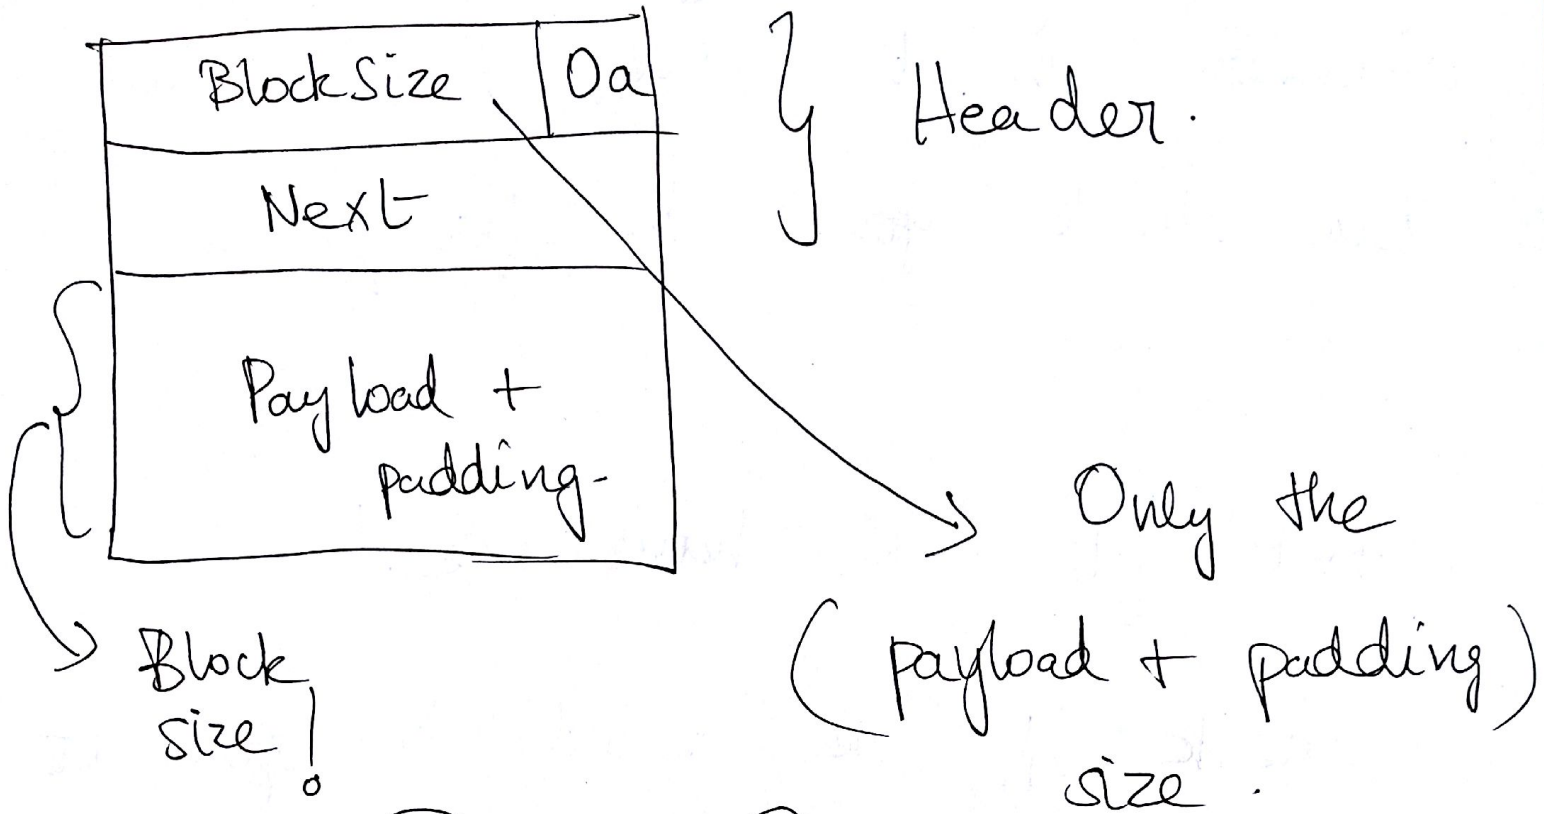 BlockSize 0a
Header.
Next
Payload +
padding.
Only the
(payload + padding)
size.
Block
size!